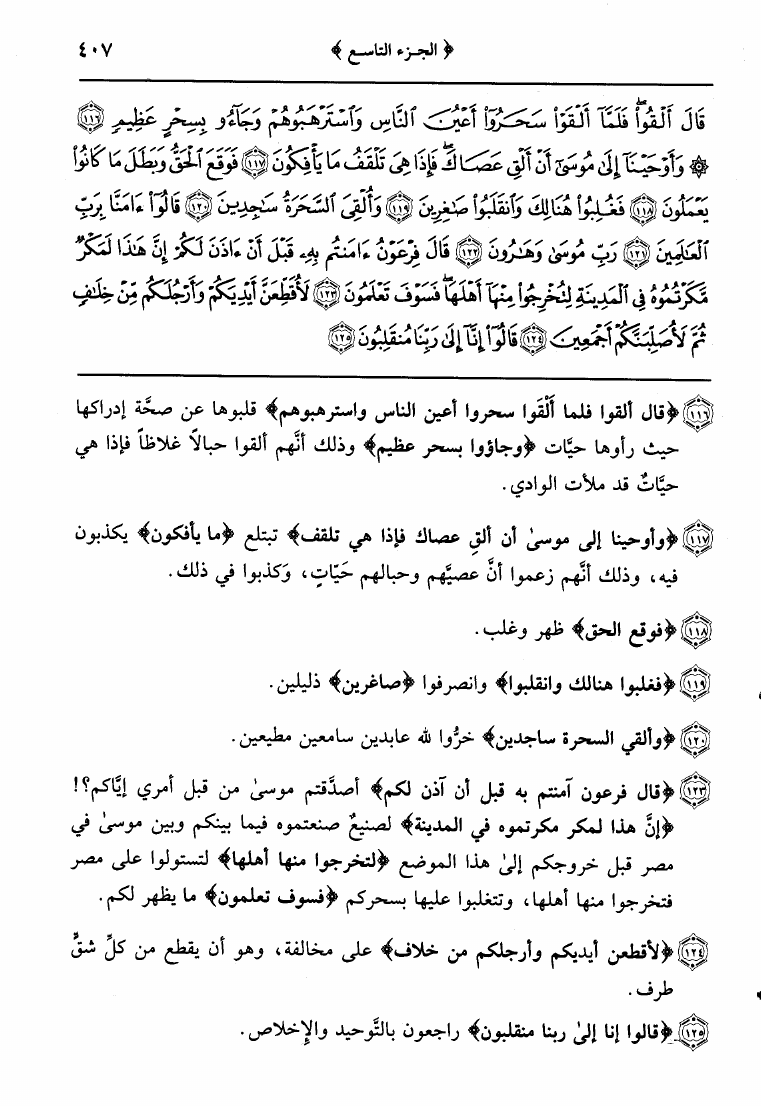 ﴿ الجزء التاسع ﴾ ٤٠٧
قَالَ أَلْقُوا۟ ۖ فَلَمَّآ أَلْقَوْا۟ سَحَرُوٓا۟ أَعْيُنَ ٱلنَّاسِ وَٱسْتَرْهَبُوهُمْ وَجَآءُو بِسِحْرٍ عَظِيمٍ ۝١١٦
۞ وَأَوْحَيْنَآ إِلَىٰ مُوسَىٰٓ أَنْ أَلْقِ عَصَاكَ ۖ فَإِذَا هِىَ تَلْقَفُ مَا يَأْفِكُونَ ۝١١٧ فَوَقَعَ ٱلْحَقُّ وَبَطَلَ مَا كَانُوا۟
يَعْمَلُونَ ۝١١٨ فَغُلِبُوا۟ هُنَالِكَ وَٱنقَلَبُوا۟ صَٰغِرِينَ ۝١١٩ وَأُلْقِىَ ٱلسَّحَرَةُ سَٰجِدِينَ ۝١٢٠ قَالُوٓا۟ ءَامَنَّا بِرَبِّ
ٱلْعَٰلَمِينَ ۝١٢١ رَبِّ مُوسَىٰ وَهَٰرُونَ ۝١٢٢ قَالَ فِرْعَوْنُ ءَامَنتُم بِهِۦ قَبْلَ أَنْ ءَاذَنَ لَكُمْ ۖ إِنَّ هَٰذَا لَمَكْرٌ
مَّكَرْتُمُوهُ فِى ٱلْمَدِينَةِ لِتُخْرِجُوا۟ مِنْهَآ أَهْلَهَا ۖ فَسَوْفَ تَعْلَمُونَ ۝١٢٣ لَأُقَطِّعَنَّ أَيْدِيَكُمْ وَأَرْجُلَكُم مِّنْ خِلَٰفٍ
ثُمَّ لَأُصَلِّبَنَّكُمْ أَجْمَعِينَ ۝١٢٤ قَالُوٓا۟ إِنَّآ إِلَىٰ رَبِّنَا مُنقَلِبُونَ ۝١٢٥
۝١١٦ ﴿قال ألقوا فلما أَلْقَوا سحروا أعين الناس واسترهبوهم﴾ قلبوها عن صحَّة إدراكها
حيث رأوها حيَّات ﴿وجاؤوا بسحر عظيم﴾ وذلك أنَّهم ألقوا حبالاً غلاظاً فإذا هي
حيَّاتٌ قد ملأت الوادي.
۝١١٧ ﴿وأوحينا إلى موسىٰ أن ألقِ عصاك فإذا هي تلقف﴾ تبتلع ﴿ما يأفكون﴾ يكذبون
فيه، وذلك أنَّهم زعموا أنَّ عصيَّهم وحبالهم حَيَّاتٍ، وَكذبوا في ذلك.
۝١١٨ ﴿فوقع الحق﴾ ظهر وغلب.
۝١١٩ ﴿فغلبوا هنالك وانقلبوا﴾ وانصرفوا ﴿صاغرين﴾ ذليلين.
۝١٢٠ ﴿وألقي السحرة ساجدين﴾ خرُّوا لله عابدين سامعين مطيعين.
۝١٢٣ ﴿قال فرعون آمنتم به قبل أن آذن لكم﴾ أصدَّقتم موسىٰ من قبل أمري إيَّاكم؟!
﴿إنَّ هذا لمكر مكرتموه في المدينة﴾ لصنيعٌ صنعتموه فيما بينكم وبين موسىٰ في
مصر قبل خروجكم إلىٰ هذا الموضع ﴿لتخرجوا منها أهلها﴾ لتستولوا على مصر
فتخرجوا منها أهلها، وتتغلبوا عليها بسحركم ﴿فسوف تعلمون﴾ ما يظهر لكم.
۝١٢٤ ﴿لأقطعن أيديكم وأرجلكم من خلاف﴾ على مخالفة، وهو أن يقطع من كلِّ شقٍّ
طرف.
۝١٢٥ ﴿قالوا إنا إلىٰ ربنا منقلبون﴾ راجعون بالتَّوحيد والإِخلاص.